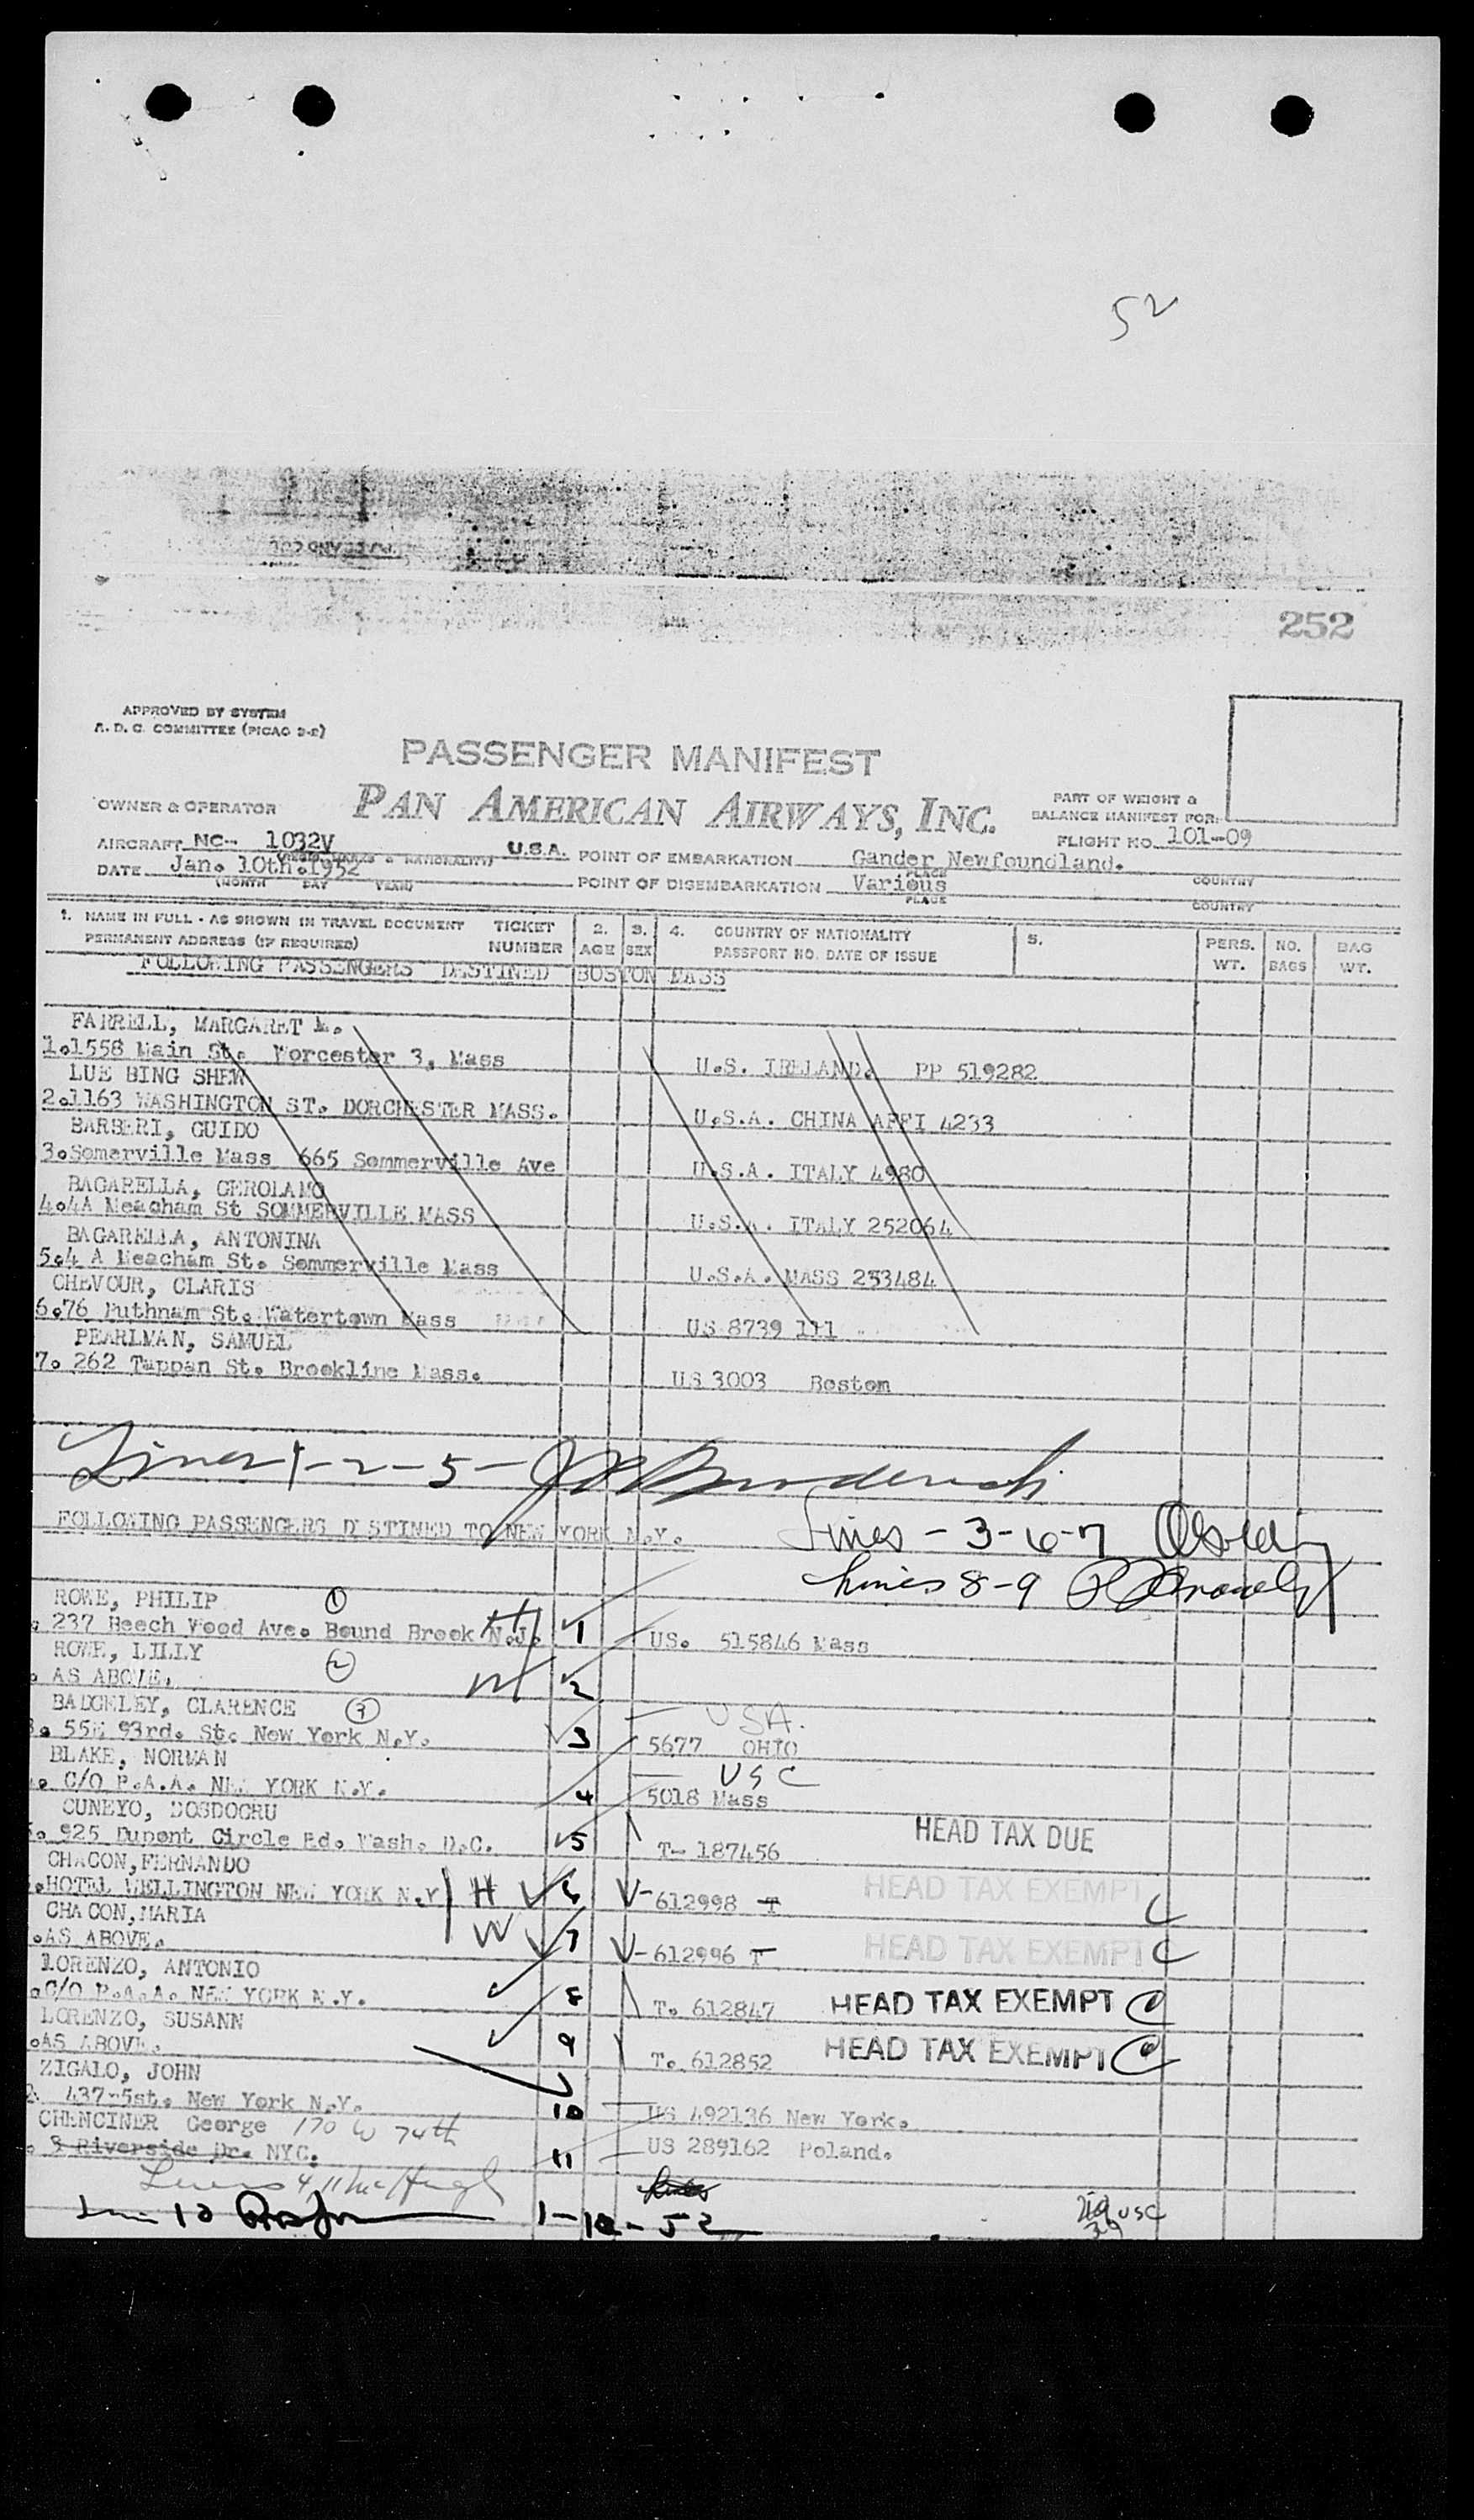 52
252
APPROVED BY SYSTEM
A. D. C. COMMITTEE (PICAO 2-2)
PASSENGER MANIFEST
OWNER & OPERATOR PAN AMERICAN AIRWAYS, INC.
PART OF WEIGHT &
BALANCE MANIFEST FOR:
AIRCRAFT NC- 1032V U.S.A. POINT OF EMBARKATION Gander Newfoundland. FLIGHT NO. 101-09
DATE Jan. 10th.1952 POINT OF DISEMBARKATION Various
(MONTH DAY YEAR) PLACE COUNTRY
1. NAME IN FULL - AS SHOWN IN TRAVEL DOCUMENT TICKET 2. 3. 4. COUNTRY OF NATIONALITY 5. PERS. NO. BAG
PERMANENT ADDRESS (IF REQUIRED) NUMBER AGE SEX PASSPORT NO. DATE OF ISSUE WT. BAGS WT.
FOLLOWING PASSENGERS DESTINED BOSTON MASS
FARRELL, MARGARET M.
1.1558 Main St. Worcester 3, Mass U.S. IRELAND. PP 519282
LUE BING SHEW
2.1163 WASHINGTON ST. DORCHESTER MASS. U.S.A. CHINA AFFI 4233
BARBERI, GUIDO
3.Somerville Mass 665 Sommerville Ave U.S.A. ITALY 4980
BAGARELLA, GEROLAMO
4.4A Meacham St SOMMERVILLE MASS U.S.A. ITALY 252064
BAGARELLA, ANTONINA
5.4 A Meacham St. Sommerville Mass U.S.A. MASS 233484
CHEVOUR, CLARIS
6.76 Puthnam St. Watertown Mass US 8739 Ill
PEARLMAN, SAMUEL
7. 262 Tappan St. Brookline Mass. US 3003 Boston
Lines 1-2-5-
FOLLOWING PASSENGERS D STINED TO NEW YORK N.Y.
Lines - 3-6-7
Lines 8-9
ROWE, PHILIP 1
237 Beech Wood Ave. Bound Brook N.J. H 1 US. 515846 Mass
ROWE, LILLY 2
AS ABOVE. W 2
BADGELEY, CLARENCE 3 USA.
55E 93rd. St. New York N.Y. 3 5677 OHIO
BLAKE, NORMAN USC
C/O P.A.A. NEW YORK N.Y. 4 5018 Mass
CUNEYO, DOSDOGRU HEAD TAX DUE
925 Dupont Circle Bd. Wash. D.C. 5 T- 187456
CHACON,FERNANDO HEAD TAX EXEMPT
HOTEL WELLINGTON NEW YORK N.Y H 6 612998 T
CHACON,MARIA HEAD TAX EXEMPT
AS ABOVE. W 7 612996 T
LORENZO, ANTONIO
C/O P.A.A. NEW YORK N.Y. 8 T. 612847 HEAD TAX EXEMPT
LORENZO, SUSANN
AS ABOVE. 9 T. 612852 HEAD TAX EXEMPT
ZIGALO, JOHN
437-5st. New York N.Y. 10 US 492136 New York.
CHENCINER George 170 W 74th
8 Riverside Dr. NYC. 11 US 289162 Poland.
Lines 4, 11 McHugh
Line 10 1-10-52 USC